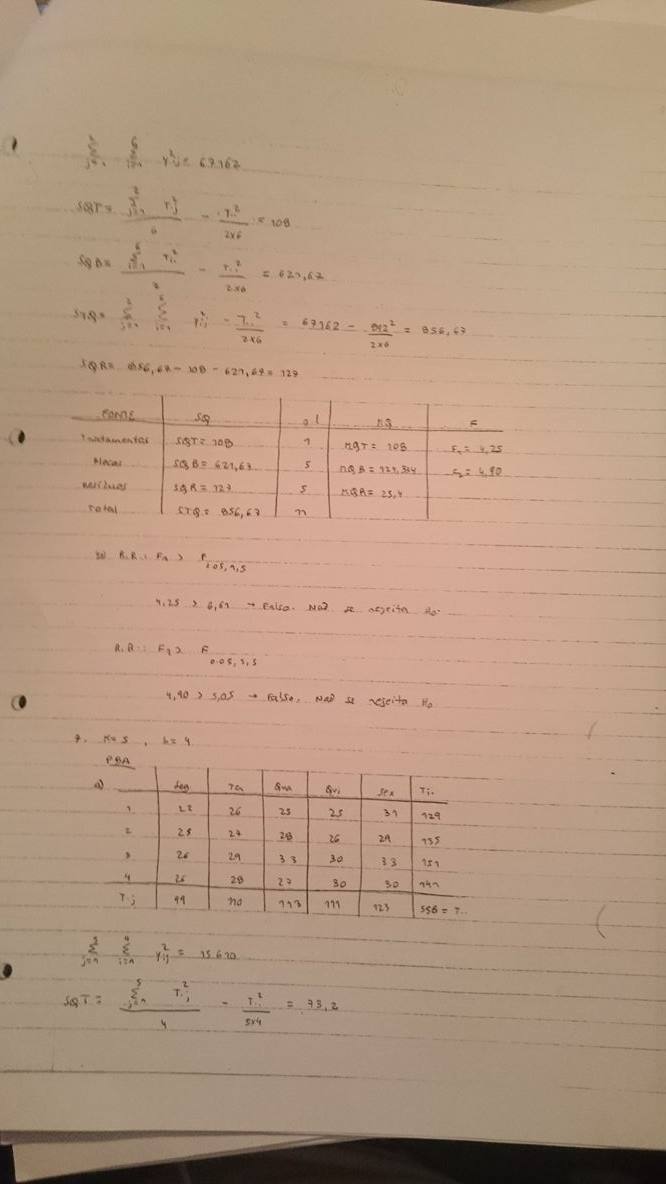 2 6
Σ Σ y²ij = 67162
j=1 i=1
SQT = Σ T.j² / 6 - T..² / 2x6 = 108
SQB = Σ Ti.² / 2 - T..² / 2x6 = 621,67
STQ = Σ Σ y²ij - T..² / 2x6 = 67162 - 892² / 2x6 = 856,67
SQR = 856,67 - 108 - 621,67 = 127
Fonte SQ g l MQ F
Tratamentos SQT = 108 1 MQT = 108 F1 = 4,25
Blocos SQB = 621,67 5 MQB = 124,334 F2 = 4,90
Resíduos SQR = 127 5 MQR = 25,4
Total STQ = 856,67 11
R.R.: F1 > F 0.05,1,5
4,25 > 6,61 → Falso. Não se rejeita H0.
R.R.: F2 > F 0.05,5,5
4,90 > 5,05 → Falso, Não se rejeita H0
7. K=5, b=4
PBA
a) Seg Ter Qua Qui Sex Ti.
1 22 26 25 25 31 129
2 25 27 28 26 29 135
3 26 29 33 30 33 151
4 26 28 27 30 30 141
T.j 99 110 113 111 123 556 = T..
5 4
Σ Σ y²ij = 15610
j=1 i=1
SQT = Σ T.j² / 4 - T..² / 5x4 = 73,2